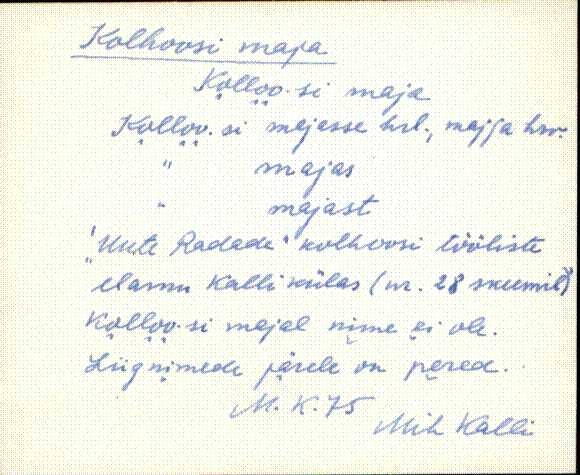 Kolhoosi maja
Kolloo·si maja
Kolloo·si majasse hrl., majja hrv.
" majas
" majast
"Uute Radade" kolhoosi tööliste
elamu Kalli külas (nr. 28 skeemil)
Kolloo·si majal nime ei ole.
Liignimede järele on pered.
M. K. 75
Mih Kalli